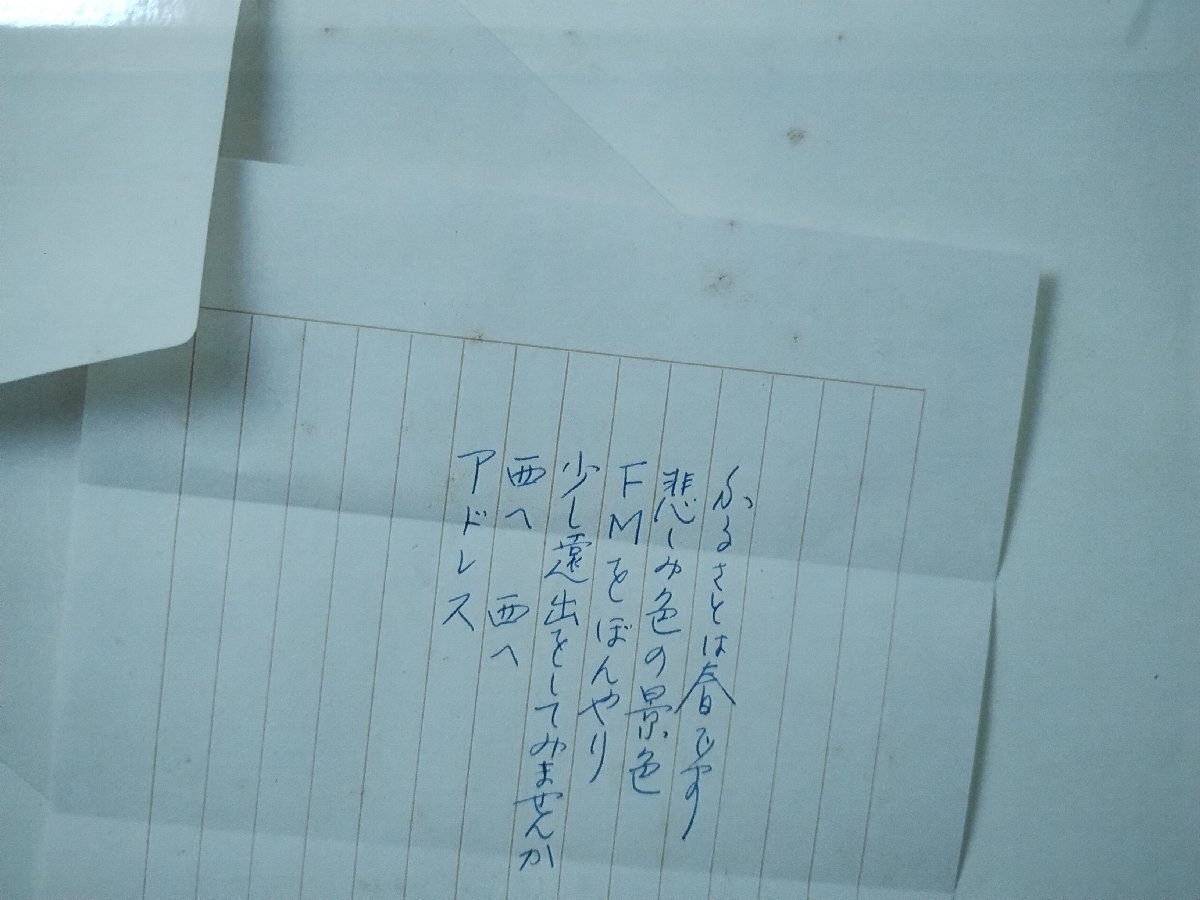 ふるさとは春です
悲しみ色の景色
FMをぼんやり
少し遠出をしてみませんか
西へ 西へ
アドレス